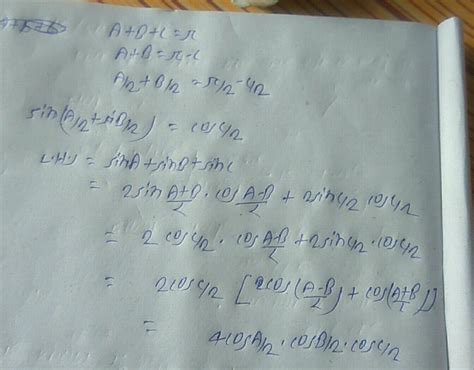 A+B+C=π
A+B=π-C
A/2+B/2=π/2-C/2
sin(A/2+sinB/2) = cosC/2
LHS = sinA+sinB+sinC
= 2sin (A+B)/2 · cos (A-B)/2 + 2sinC/2 cosC/2
= 2cosC/2 · cos (A-B)/2 + 2sinC/2 · cosC/2
= 2cosC/2 [cos(A-B/2) + cos(A+B/2)]
=
4cosA/2 · cosB/2 · cosC/2